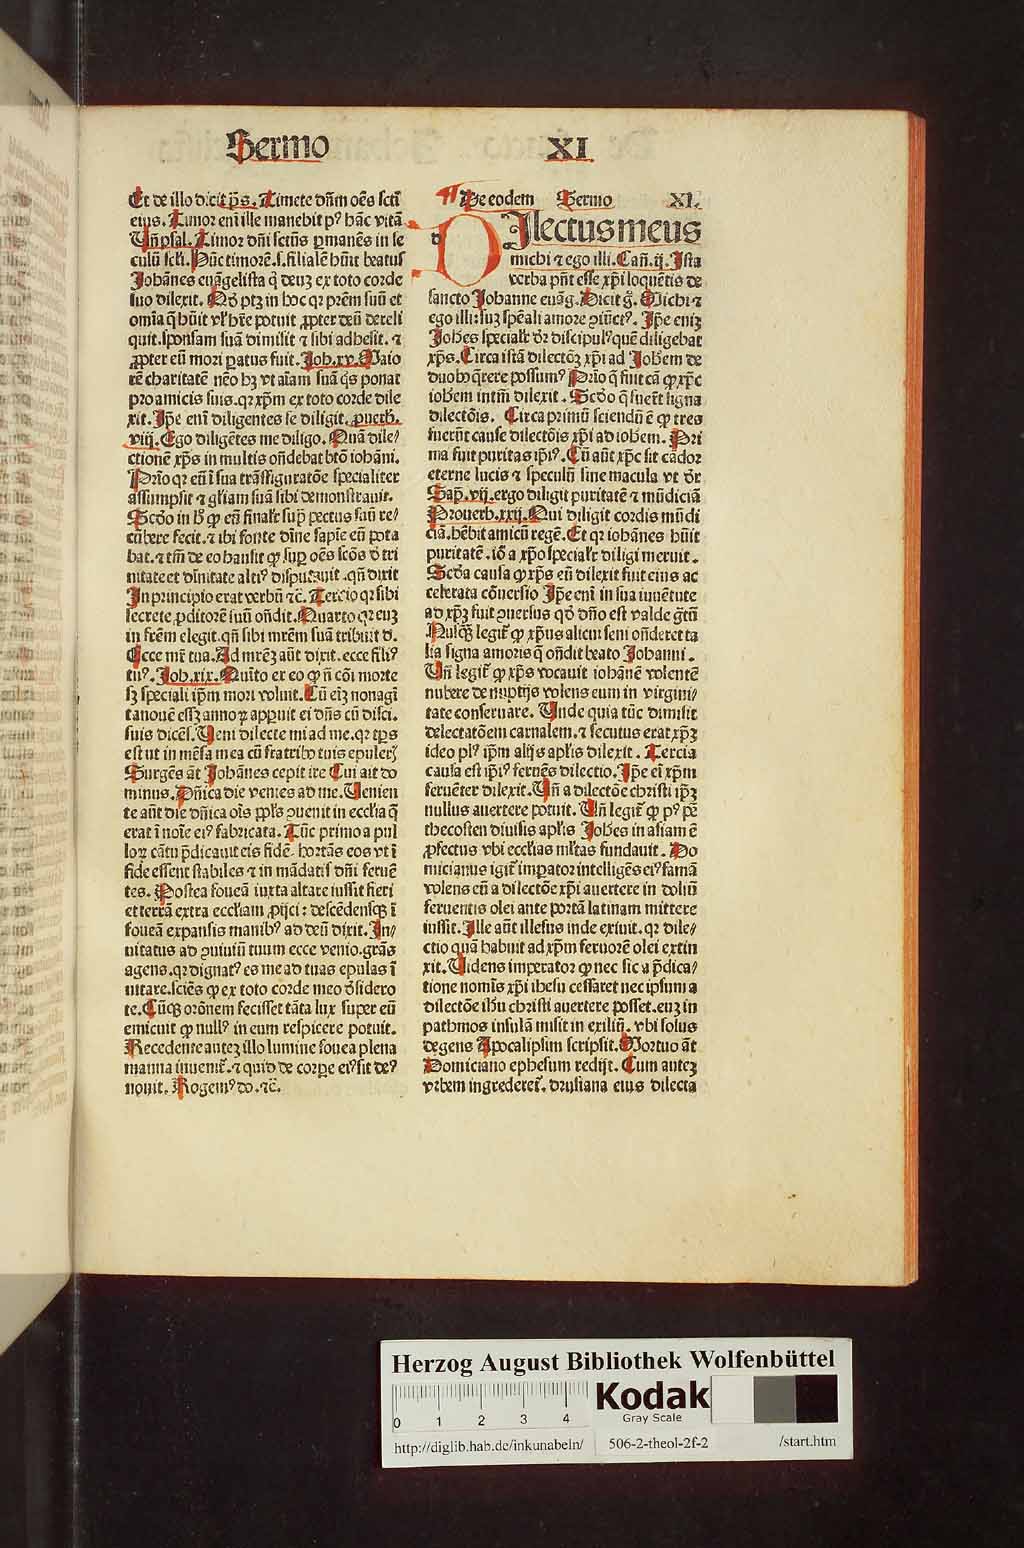 Sermo XI
Et de illo dicit ps̄. Timete dn̄m oēs sctī
eius. Timor eni ille manebit pꝰ hāc vitā
Un̄ psal. Timor dn̄i sctūs ꝑmanēs in se
culū scl̄i. Hūc timorē.s. filialē hūit beatus
Johānes euāgelista q̄ deuꝫ ex toto corde
suo dilexit. Nō ptꝫ in hoc qꝛ prēm suū et
omīa q̄ hūit vl̓ hr̄e potuit ꝓpter deū dereli
quit. sponsam suā dimisit ⁊ sibi adhesit. ⁊
ꝓpter eū mori ꝑatus fuit. Joh. xv. Maio
rē charitatē nēo hꝫ vt aīam suā q̄s ponat
pro amicis suis. qꝛ xp̄m ex toto corde dile
xit. Ip̄e enī diligentes se diligit. ꝓuerb.
viij. Ego diligētes me diligo. Quā dile⸗
ctionē xp̄s in multis on̄debat btō iohāni.
Prīo qꝛ eū ī sua trāsfiguratōe specialiter
assumpsit ⁊ gl̄iam suā sibi demonstrauit.
Scdō in hͦ ꝙ eū final̓r sup̄ pectus suū re⸗
cūbere fecit. ⁊ ibi fonte dīne sapīe eū pota
bat. ⁊ tm̄ de eo hausit ꝙ suꝑ oēs scōs ꝺ̄ tri
nitate et dīnitate altiꝰ disputauit. qn̄ dixit
In principio erat verbū ⁊c̄. Tercio qꝛ sibi
secrete ꝓditorē suū on̄dit. Quarto qꝛ euꝫ
in fr̄em elegit. qn̄ sibi mr̄em suā tribuit ꝺ.
Ecce mr̄ tua. Ad mrēꝫ aūt dixit. ecce filiꝰ
tuꝰ. Joh. xix. Quīto ex eo ꝙ n̄ cōi morte
sꝫ speciali ip̄m mori voluit. Cū eīꝫ nonagī
tanouē essꝫ annoꝝ appuit ei dn̄s cū disci.
suis dicēs. Ueni dilecte mi ad me. qꝛ tp̄s
est ut in mēsa mea cū fratribꝰ tuis epuleꝛꝭ
Surgēs āt Johānes cepit ire Cui ait do
minus. Dn̄ica die venies ad me. Uenien
te aūt die dn̄ica oīs pp̄ls ꝯuenit in eccl̄ia q̄
erat ī noīe eiꝰ fabricata. Tūc primo a pul
loꝝ cātu p̄dicauit eis fidē. hortās eos vt ī
fide essent stabiles ⁊ in mādatis dn̄i feruē
tes. Postea foueā iuxta altare iussit fieri
et terrā extra eccl̄iam ꝓijci: descēdensqꝫ ī
foueā expansis manibꝰ ad deū dixit. In⸗
uitatus ad ꝯuiuiū tuum ecce venio. grās
agens. qꝛ dignatꝰ es me ad tuas epulas ī
uitare. sciēs ꝙ ex toto corde meo ꝺ̄sidero
te. Cūqꝫ orōnem fecisset tāta lux super eū
emicuit ꝙ nullꝰ in eum respicere potuit.
Recedente autez illo lumine fouea plena
manna inuenit̄. ⁊ quid de corꝑe eiꝰ sit deꝰ
nouit. Rogemꝰ do. ⁊c̄.
De eodem Sermo XI.
d Dilectus meus
michi ⁊ ego illi. Can̄. ij. Ista
verba pn̄t esse xp̄i loquētis de
sancto Johanne euāg. Dicit g̊. Michi ⁊
ego illi: suꝫ spēali amore ꝯiūctꝰ. Ip̄e enīꝫ
Joh̄es special̓r dr̄ discipulꝰ quē diligebat
xp̄s. Circa istā dilectōꝫ xp̄i ad Joh̄em de
duobꝰ q̄rere possumꝰ Prīo q̄ fuit cā ꝙ xp̄c
ioh̄em intm̄ dilexit. Scdō q̄ fuer̄t signa
dilectōis. Circa primū sciendū ē ꝙ tres
fuerūt cause dilectōis xp̄i ad ioh̄em. Pri
ma fuit puritas ip̄iꝰ. Cū aūt xp̄c sit cādor
eterne lucis ⁊ speculū sine macula vt dr̄
Sap̄. vij. ergo diligit puritatē ⁊ mūdiciā
Prouerb. xxij. Qui diligit cordis mūdi
ciā. hēbit amicū regē. Et qꝛ iohānes hūit
puritatē. iō a xp̄o special̓r diligi meruit.
Scdā causa ꝙ xp̄s eū dilexit fuit eius ac
celerata cōuersio Ip̄e enī in sua iuuētute
ad xp̄ꝫ fuit ꝯuersus qd̄ dn̄o est valde gr̄tū
Nusqꝫ legit̄ ꝙ xp̄us alicui seni on̄deret ta
lia signa amoris q̄ on̄dit beato Johanni.
Un̄ legit̄ ꝙ xp̄s vocauit iohānē volentē
nubere de nuptijs volens eum in virgini⸗
tate conseruare. Unde quia tūc dimisit
delectatōem carnalem. ⁊ secutus erat xp̄ꝫ
ideo plꝰ ip̄m alijs apl̄is dilexit. Tercia
causa est ip̄iꝰ feruēs dilectio. Ip̄e ei xp̄m
feruēter dilexit. Un̄ a dilectōe christi ip̄ꝫ
nullus auertere potuit. Un̄ legit̄ ꝙ pꝰ pē
thecosten diuisis apl̄is Joh̄es in asiam ē
ꝓfectus vbi eccl̄ias ml̄tas fundauit. Do
micianus igit̄ imꝑator intelligēs eiꝰ famā
volens eū a dilectōe xp̄i auertere in doliū
feruentis olei ante portā latinam mittere
iussit. Ille aūt illesus inde exiuit. qꝛ dile⸗
ctio quā habuit ad xp̄m feruorē olei extin
xit. Uidens imperator ꝙ nec sic a p̄dica⸗
tione nomīs xp̄i ihesu cessaret nec ipsum a
dilectōe ih̄u christi auertere posset. euꝫ in
pathmos insulā misit in exiliū. vbi solus
degens Apocalipsim scripsit. Mortuo āt
Domiciano ephesum redijt. Cum autez
vrbem ingrederet̄. drusiana eius dilecta
Herzog August Bibliothek Wolfenbüttel
0 1 2 3 4
Kodak
Gray Scale
http://diglib.hab.de/inkunabeln/ 506-2-theol-2f-2 /start.htm